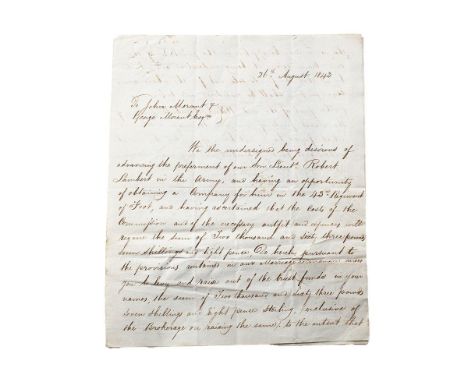 26th August 1843
To John Morant &
George Morant Esqrs
We the undersigned being desirous of
advancing the preferment of our Son Lieutt. Robert
Lambert in the Army, and having an opportunity
of obtaining a Company for him in the 43rd Regiment
of Foot, and having ascertained that the Cost of the
Commission and of the necessary outfit and expenses will
require the sum of Two thousand and Sixty three pounds
Seven Shillings and Eight pence Do hereby pursuant to
the provisions contained in our Marriage
you to levy and raise out of the trust funds in your
names, the sum of Two thousand and Sixty three pounds
Seven Shillings and Eight pence Sterling, inclusive of
the Brokerage on raising the same, to the extent that